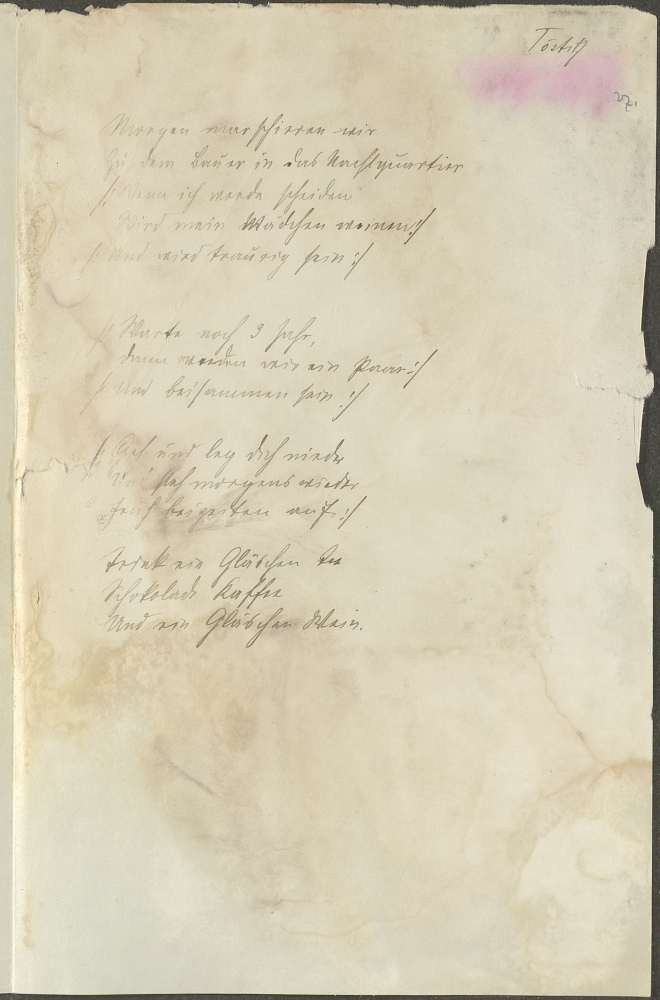 27.
Morgen marschieren wir
Zu dem Bauer in das Nachtquartier
/: Wenn ich werde scheiden
Wird mein Mädchen weinen :/
/: Und wird traurig sein :/
/: Warte noch 3 Jahr,
dann werden wir ein Paar :/
/: Und beisammen sein :/
/: Geh und leg dich nieder
Und steh morgens wieder
Früh beizeiten auf :/
Trink ein Gläschen Tee
Schokolade Kaffee
Und ein Gläschen Wein.